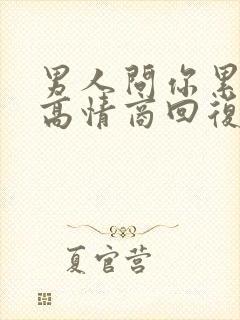 男人問你累
高情商回復
夏官营